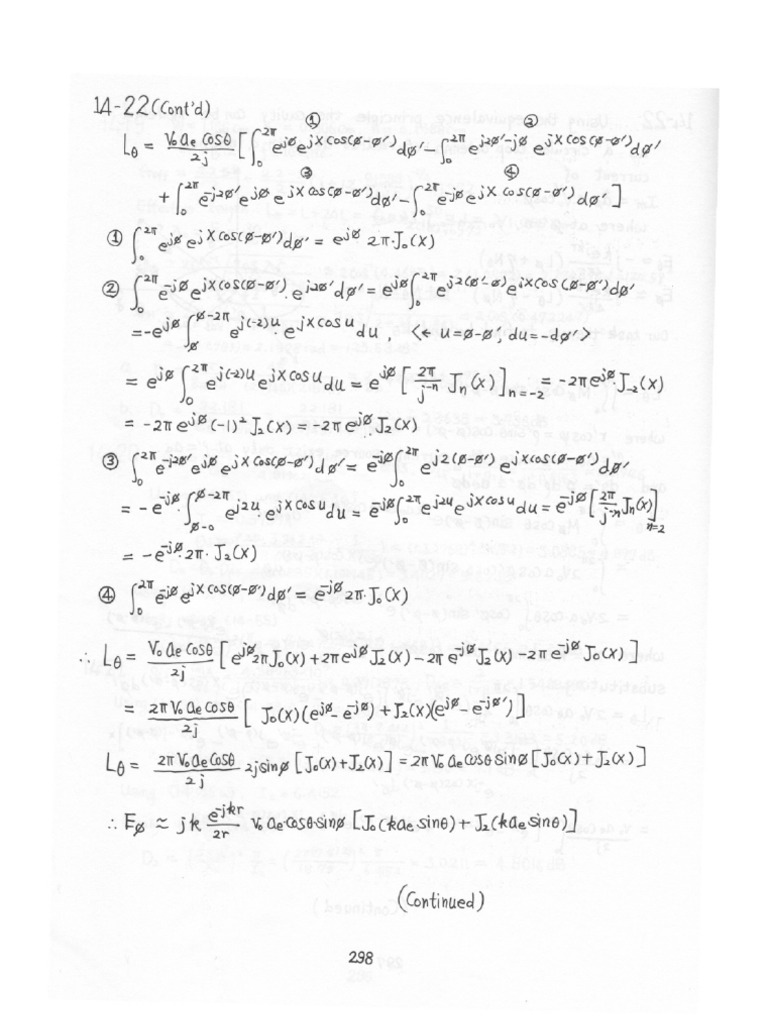 14-22 (Cont'd)
① ②
L_θ = V₀ a_e cosθ / 2j [ ∫₀^{2π} e^{jø} e^{jX cos(ø-ø')} dø' - ∫₀^{2π} e^{j2ø'-jø} e^{jX cos(ø-ø')} dø'
③ ④
+ ∫₀^{2π} e^{-j2ø'} e^{jø} e^{jX cos(ø-ø')} dø' - ∫₀^{2π} e^{-jø} e^{jX cos(ø-ø')} dø' ]
① ∫₀^{2π} e^{jø} e^{jX cos(ø-ø')} dø' = e^{jø} · 2π · J₀(X)
② ∫₀^{2π} e^{-jø} e^{jX cos(ø-ø')} · e^{j2ø'} dø' = e^{jø} ∫₀^{2π} e^{j2(ø'-ø)} e^{jX cos(ø-ø')} dø'
= -e^{jø} ∫_ø^{ø-2π} e^{j(-2)u} · e^{jX cos u} du , <← u = ø-ø', du = -dø'>
= e^{jø} ∫₀^{2π} e^{j(-2)u} e^{jX cos u} du = e^{jø} [ 2π / j^{-n} J_n(X) ]_{n=-2} = -2π e^{jø} J_{-2}(X)
= -2π e^{jø} (-1)² J₂(X) = -2π e^{jø} J₂(X)
③ ∫₀^{2π} e^{-j2ø'} e^{jø} e^{jX cos(ø-ø')} dø' = e^{-jø} ∫₀^{2π} e^{j2(ø-ø')} e^{jX cos(ø-ø')} dø'
= -e^{-jø} · ∫_{ø-0}^{ø-2π} e^{j2u} · e^{jX cos u} du = e^{-jø} ∫₀^{2π} e^{j2u} e^{jX cos u} du = e^{-jø} [ 2π / j^{-n} J_n(X) ]_{n=2}
= -e^{-jø} · 2π · J₂(X)
④ ∫₀^{2π} e^{-jø} e^{jX cos(ø-ø')} dø' = e^{-jø} 2π · J₀(X)
∴ L_θ = V₀ a_e cosθ / 2j [ e^{jø} 2π J₀(X) + 2π e^{jø} J₂(X) - 2π e^{-jø} J₂(X) - 2π e^{-jø} J₀(X) ]
= 2π V₀ a_e cosθ / 2j [ J₀(X) (e^{jø} - e^{-jø}) + J₂(X) (e^{jø} - e^{-jø}) ]
L_θ = 2π V₀ a_e cosθ / 2j 2j sinø [ J₀(X) + J₂(X) ] = 2π V₀ a_e cosθ sinø [ J₀(X) + J₂(X) ]
∴ E_ø ≈ jk e^{-jkr} / 2r V₀ a_e cosθ sinø [ J₀(k a_e sinθ) + J₂(k a_e sinθ) ]
(Continued)
298